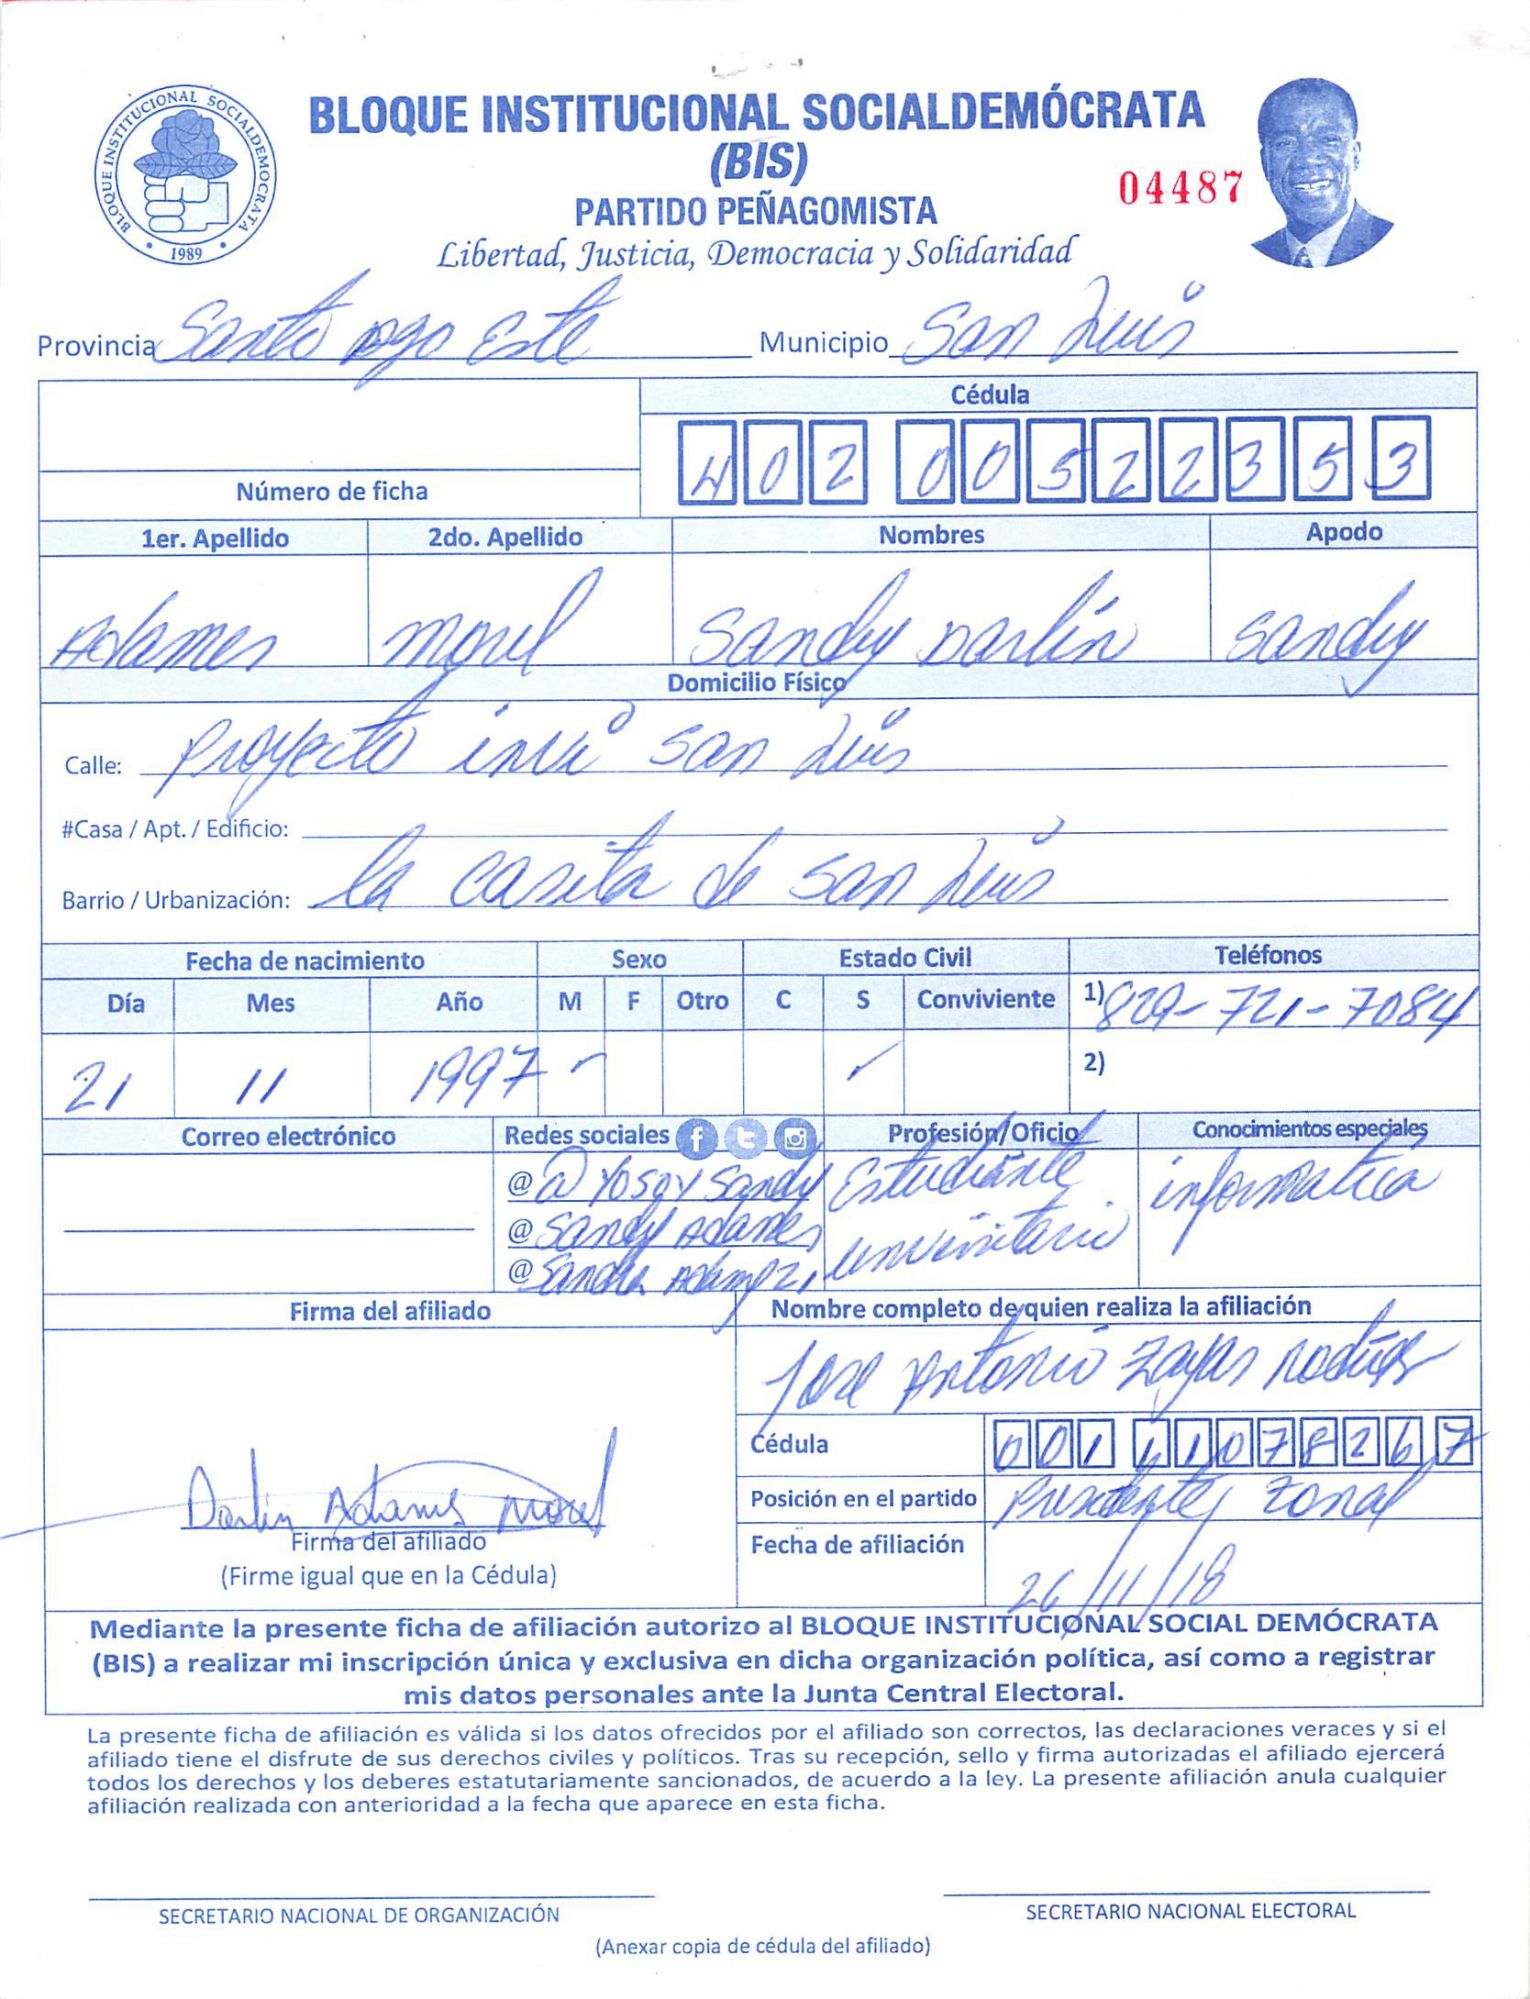 BLOQUE INSTITUCIONAL SOCIALDEMOCRATA
1989
BLOQUE INSTITUCIONAL SOCIALDEMÓCRATA
(BIS)
04487
PARTIDO PEÑAGOMISTA
Libertad, Justicia, Democracia y Solidaridad
Provincia Santo Dgo Este Municipio San Luis
Cédula
402 0052235 3
Número de ficha
1er. Apellido 2do. Apellido Nombres Apodo
Adames Morel Sandy Darlin Sandy
Domicilio Físico
Calle: Proyecto invi San Luis
#Casa / Apt. / Edificio:
Barrio / Urbanización: la casita de San Luis
Fecha de nacimiento Sexo Estado Civil Teléfonos
Día Mes Año M F Otro C S Conviviente 1) 829-721-7084
21 11 1997 ✓ ✓ 2)
Correo electrónico Redes sociales Profesión/Oficio Conocimientos especiales
@ @ Yo soy Sandy Estudiante informatica
@ Sandy Adames universitario
@
Firma del afiliado Nombre completo de quien realiza la afiliación
Jose Antonio Zayas
Cédula 001 1107826 7
Posición en el partido Presidente Zonal
Darlin Adames Morel
Firma del afiliado
Fecha de afiliación 26/11/18
(Firme igual que en la Cédula)
Mediante la presente ficha de afiliación autorizo al BLOQUE INSTITUCIONAL SOCIAL DEMÓCRATA
(BIS) a realizar mi inscripción única y exclusiva en dicha organización política, así como a registrar
mis datos personales ante la Junta Central Electoral.
La presente ficha de afiliación es válida si los datos ofrecidos por el afiliado son correctos, las declaraciones veraces y si el
afiliado tiene el disfrute de sus derechos civiles y políticos. Tras su recepción, sello y firma autorizadas el afiliado ejercerá
todos los derechos y los deberes estatutariamente sancionados, de acuerdo a la ley. La presente afiliación anula cualquier
afiliación realizada con anterioridad a la fecha que aparece en esta ficha.
SECRETARIO NACIONAL DE ORGANIZACIÓN SECRETARIO NACIONAL ELECTORAL
(Anexar copia de cédula del afiliado)